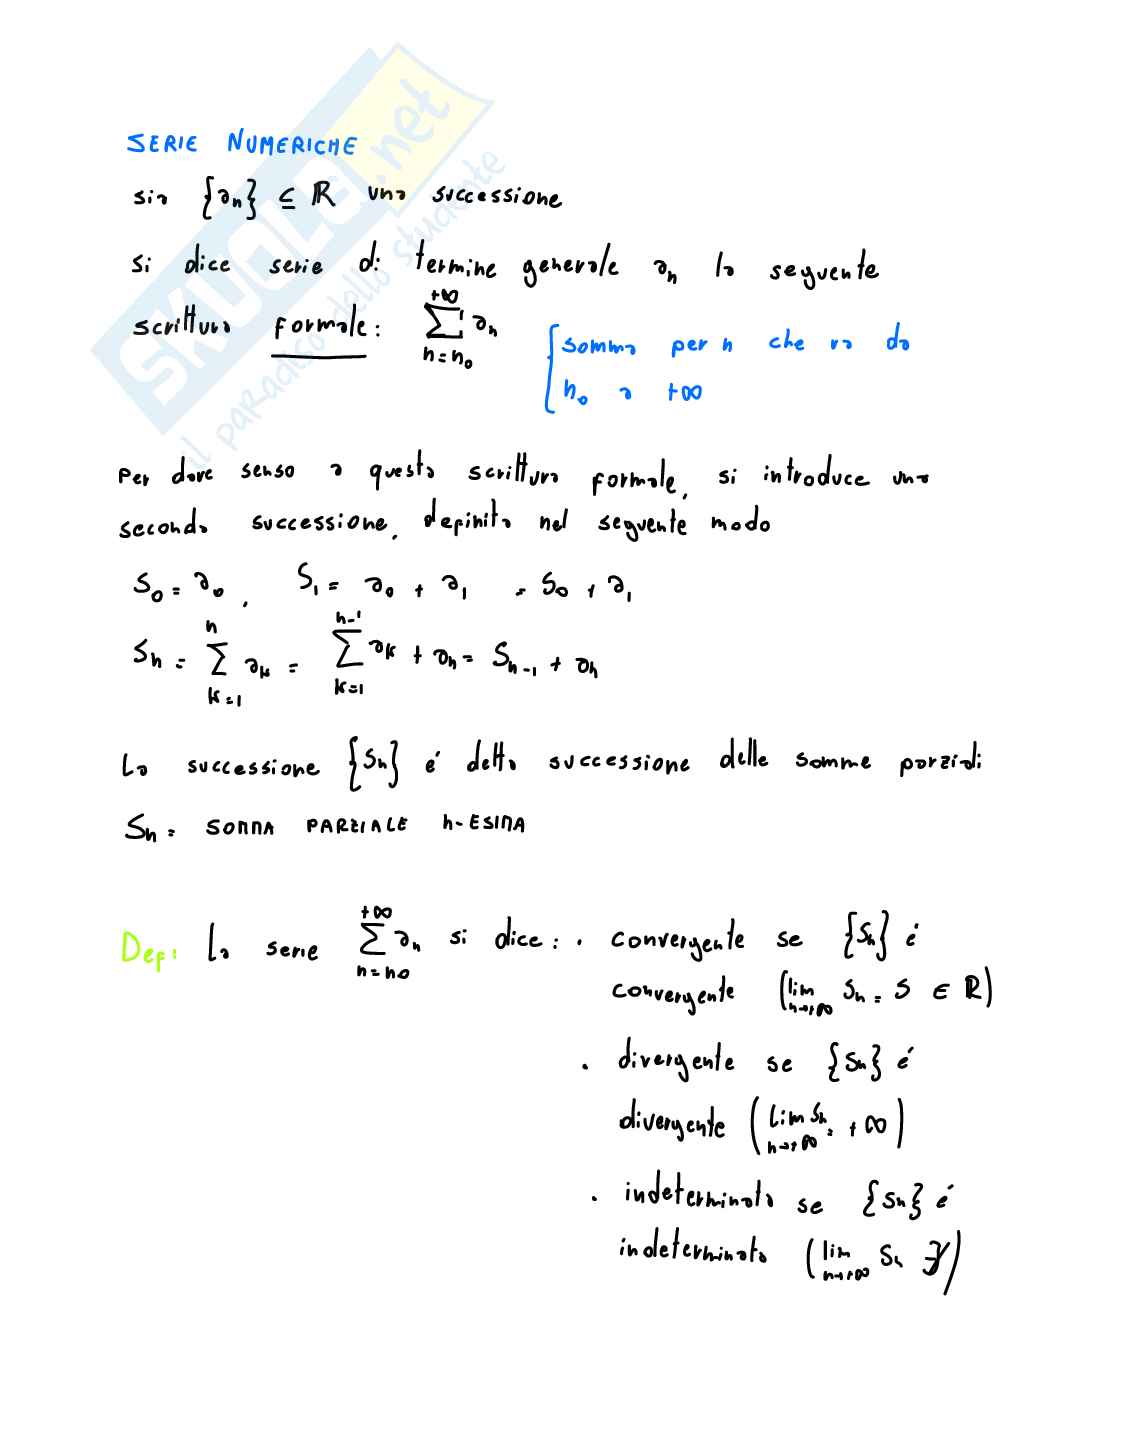 SKUOLA.net
il paradiso dello studente
SERIE NUMERICHE
sia {aₙ} ⊆ ℝ una successione
si dice serie di termine generale aₙ la seguente
scrittura formale: +∞ ∑ n=n₀ aₙ
{somma per n che va da
n₀ a +∞
Per dare senso a questa scrittura formale, si introduce una
seconda successione, definita nel seguente modo
S₀ = a₀, S₁ = a₀ + a₁ = S₀ + a₁
Sₙ = n ∑ k=1 aₖ = n-1 ∑ k=1 aₖ + aₙ = Sₙ₋₁ + aₙ
La successione {Sₙ} é detta successione delle somme parziali
Sₙ = SOMMA PARZIALE n-ESIMA
Def: La serie +∞ ∑ n=n₀ aₙ si dice: · convergente se {Sₙ} é
convergente (lim n→+∞ Sₙ = S ∈ ℝ)
· divergente se {Sₙ} é
divergente (lim n→+∞ Sₙ = +∞)
· indeterminata se {Sₙ} é
indeterminata (lim n→+∞ Sₙ ∄)